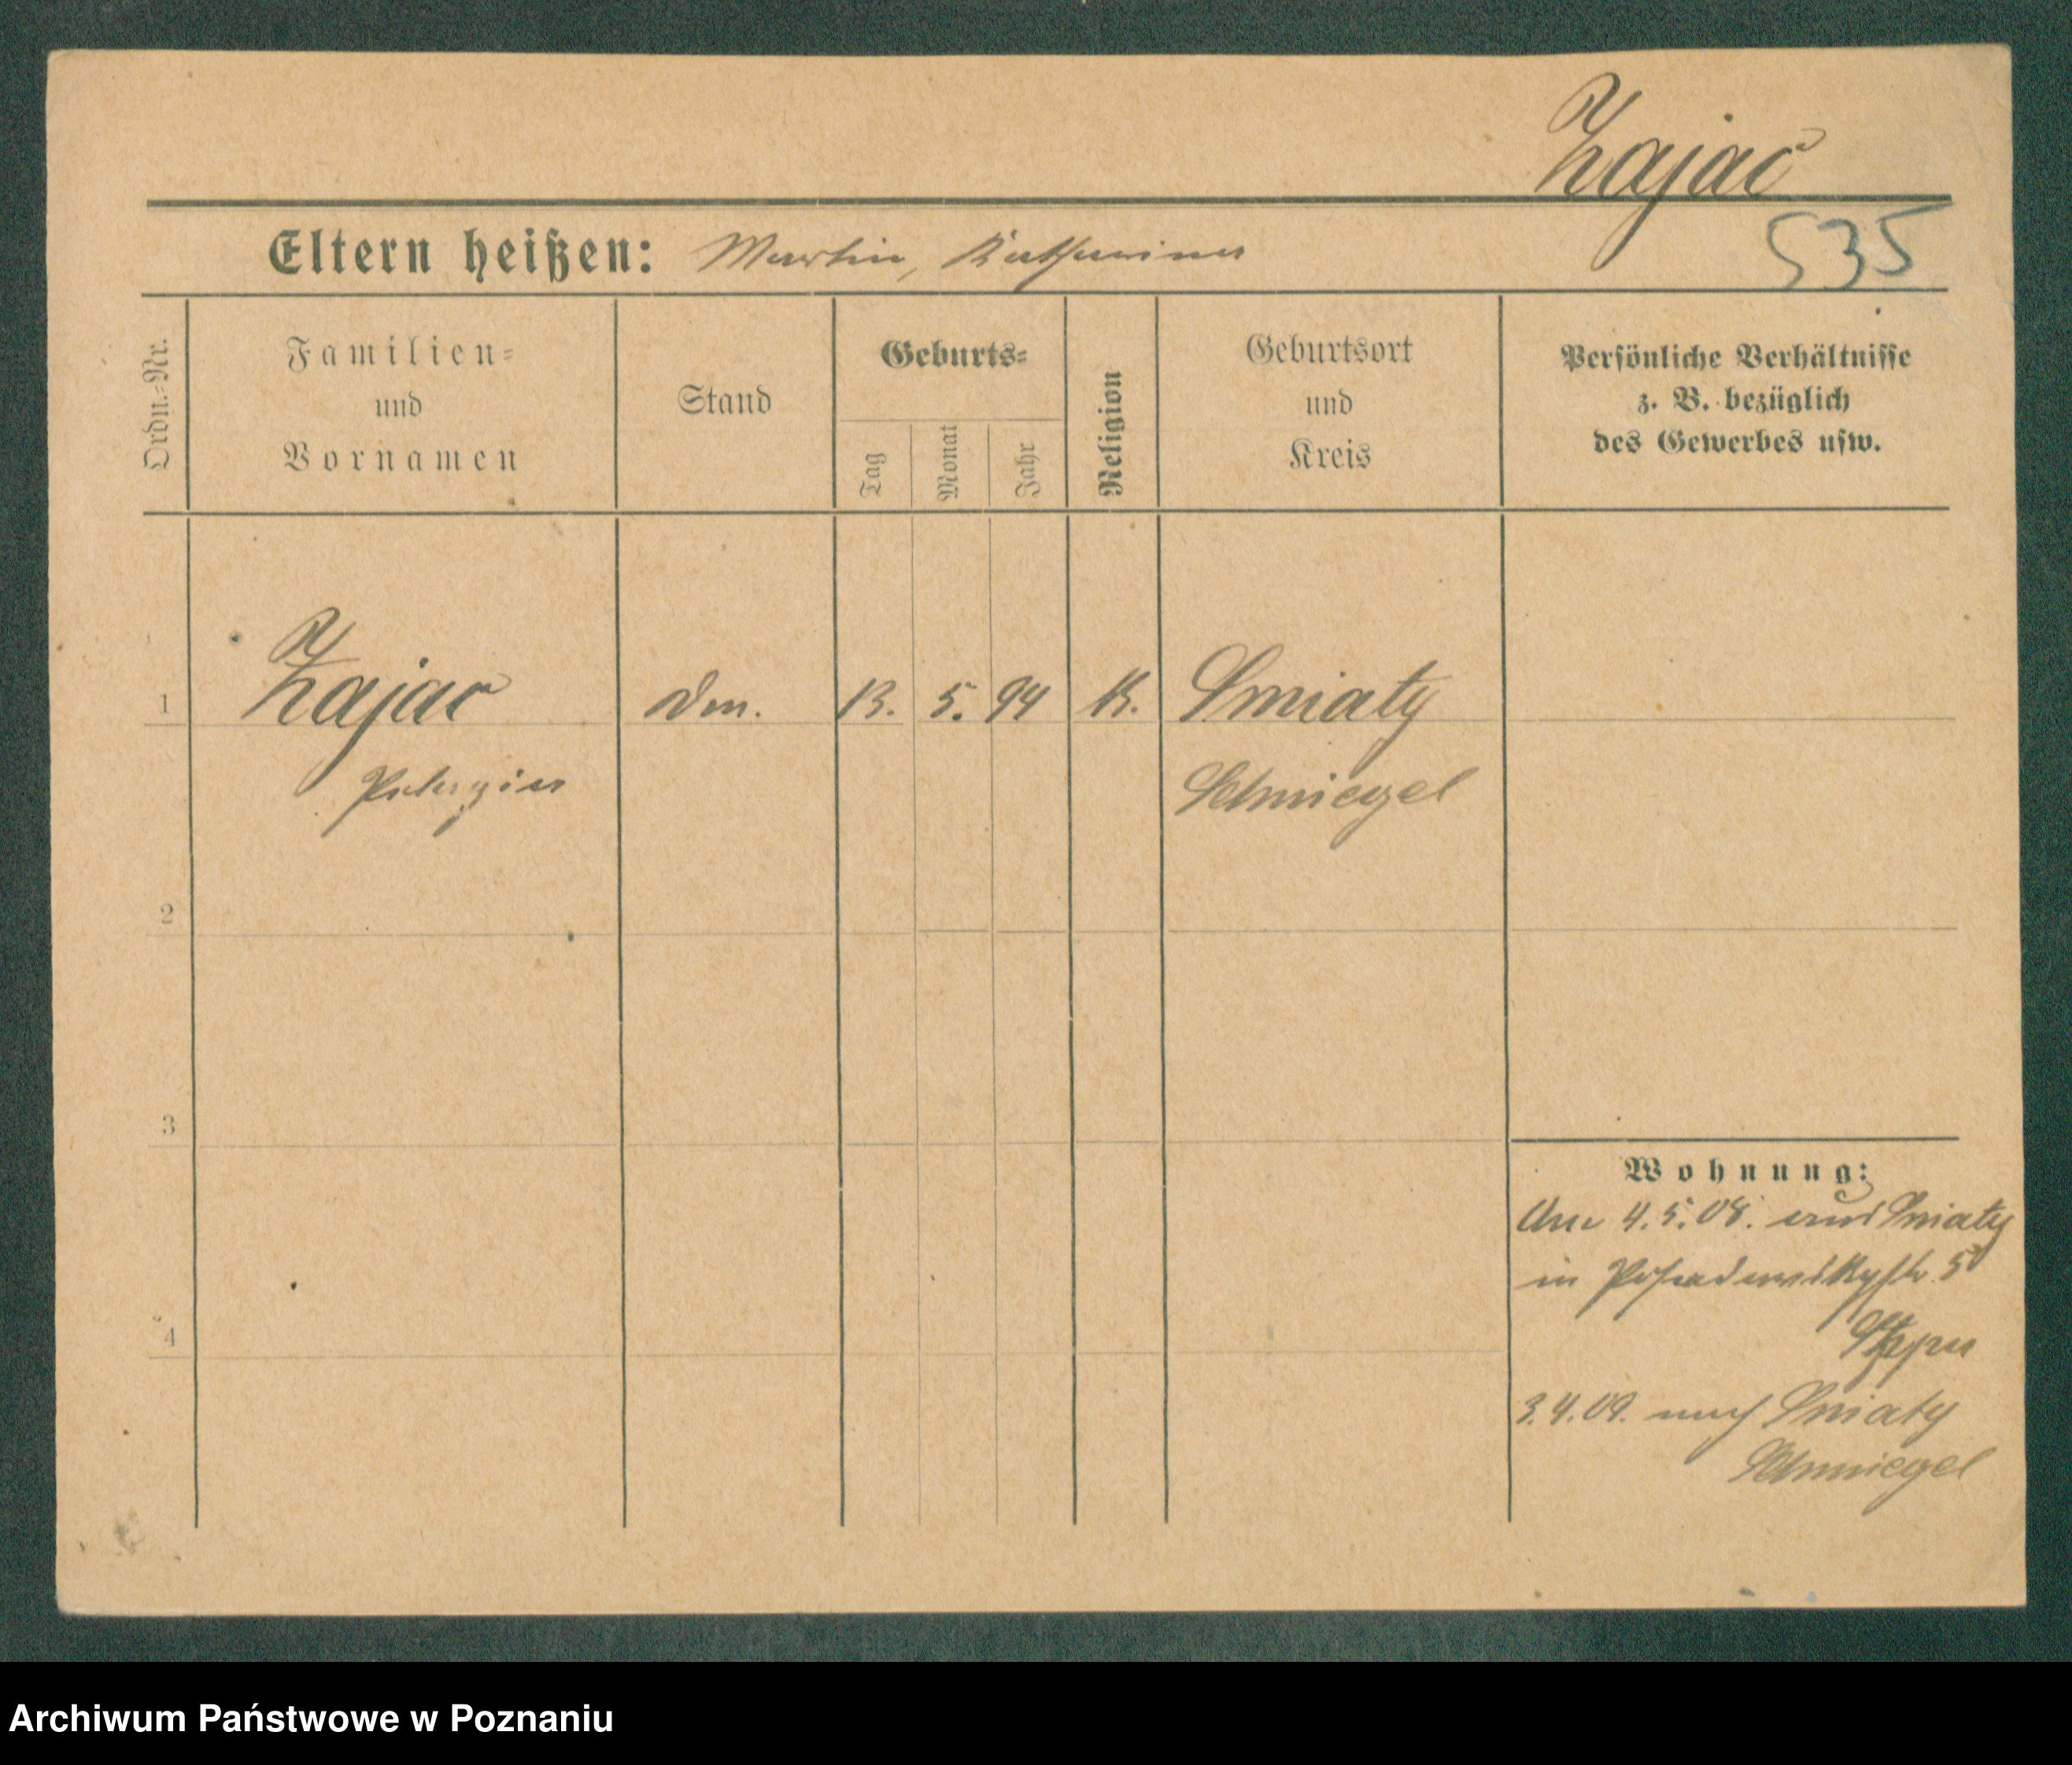 Zając
Eltern heißen: Martin, Katharina
535
Ordn.-Nr.
Familien-
und
Vornamen
Stand
Geburts-
Tag
Monat
Jahr
Religion
Geburtsort
und
Kreis
Persönliche Verhältnisse
z. B. bezüglich
des Gewerbes usw.
1 Zając 5. 94 K. Sniaty
Pelagia Schmiegel
2
3
4
Wohnung:
4.5.08. aus Sniaty
in 5
3.4.09. nach Sniaty
Schmiegel
Archiwum Państwowe w Poznaniu